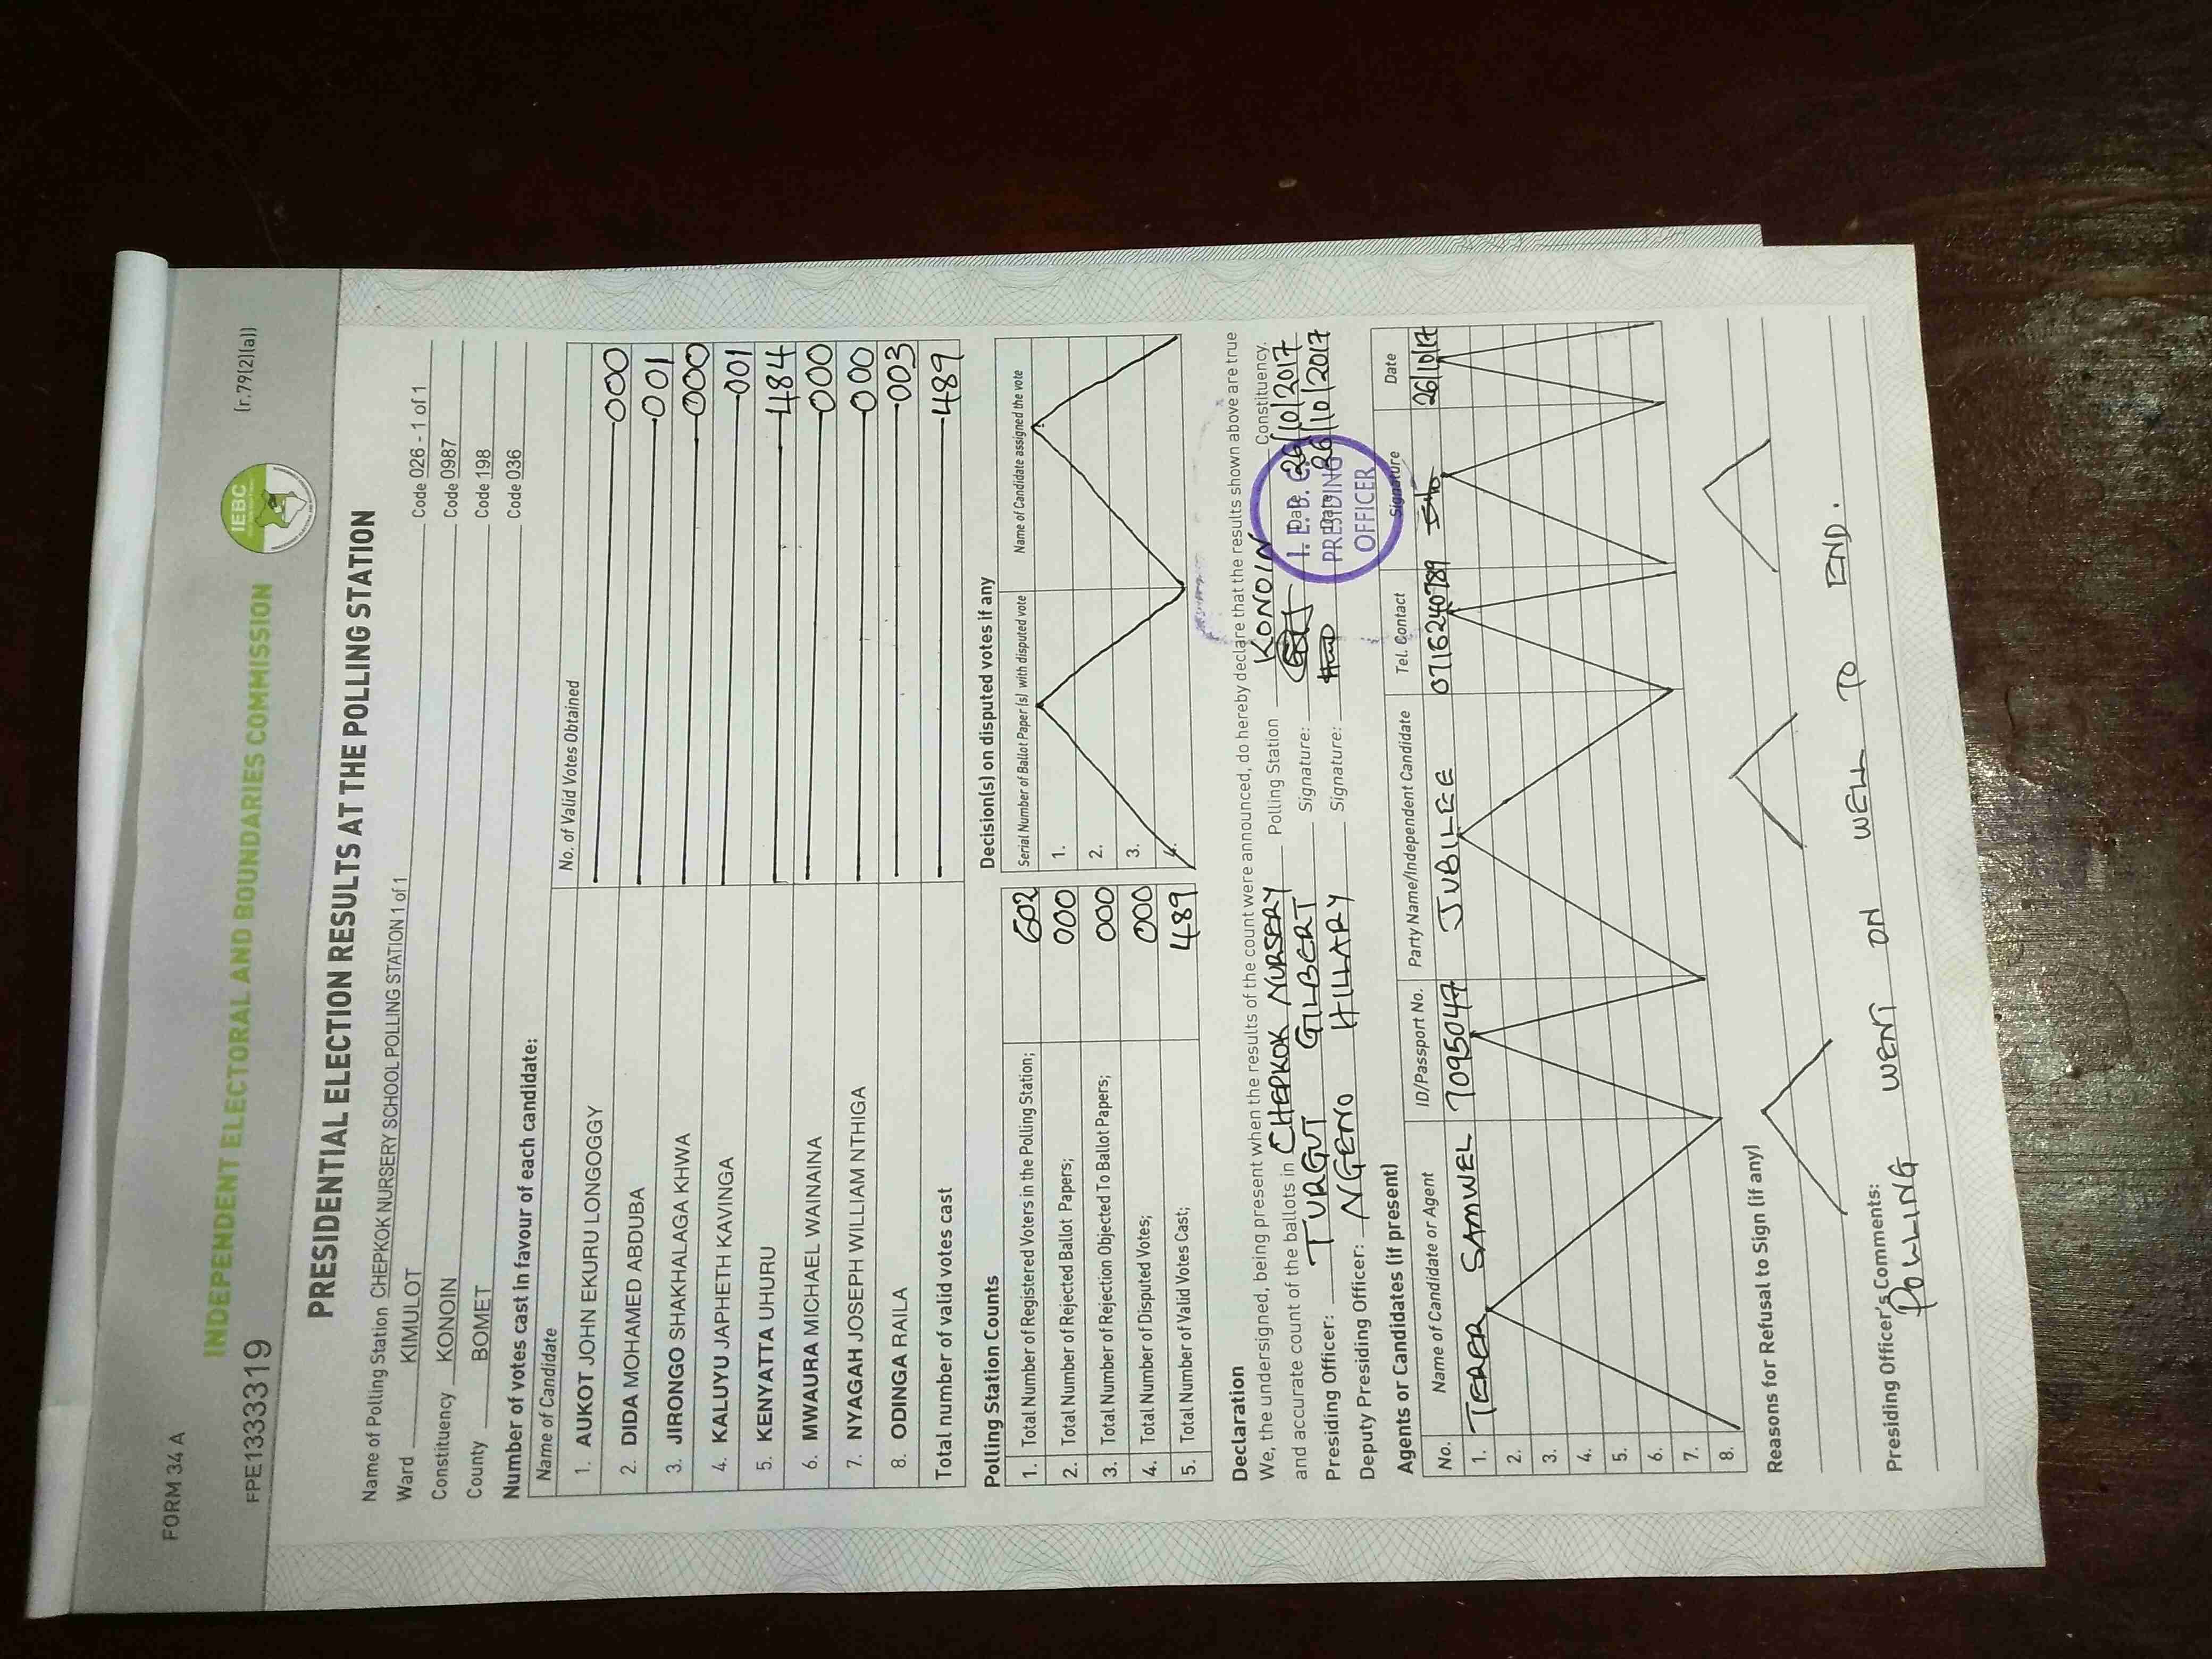 FORM 34 A
(r.79(2)(a))
IEBC
INDEPENDENT ELECTORAL AND BOUNDARIES COMMISSION
FPE1333319
PRESIDENTIAL ELECTION RESULTS AT THE POLLING STATION
Name of Polling Station CHEPKOK NURSERY SCHOOL POLLING STATION 1 of 1 Code 026 - 1 of 1
Ward KIMULOT Code 0987
Constituency KONOIN Code 198
County BOMET Code 036
Number of votes cast in favour of each candidate:
Name of Candidate No. of Valid Votes Obtained
1. AUKOT JOHN EKURU LONGOGGY 000
2. DIDA MOHAMED ABDUBA 001
3. JIRONGO SHAKHALAGA KHWA 000
4. KALUYU JAPHETH KAVINGA 001
5. KENYATTA UHURU 484
6. MWAURA MICHAEL WAINAINA 000
7. NYAGAH JOSEPH WILLIAM NTHIGA 000
8. ODINGA RAILA 003
Total number of valid votes cast 489
Polling Station Counts
1. Total Number of Registered Voters in the Polling Station; 602
2. Total Number of Rejected Ballot Papers; 000
3. Total Number of Rejection Objected To Ballot Papers; 000
4. Total Number of Disputed Votes; 000
5. Total Number of Valid Votes Cast; 489
Decision(s) on disputed votes if any
Serial Number of Ballot Paper (s) with disputed vote Name of Candidate assigned the vote
1.
2.
3.
4.
Declaration
We, the undersigned, being present when the results of the count were announced, do hereby declare that the results shown above are true
and accurate count of the ballots in CHEPKOK NURSERY Polling Station KONOIN Constituency.
Presiding Officer: TURGUT GILBERT Signature: Date 26/10/2017
Deputy Presiding Officer: NGENO HILLARY Signature: Date 26/10/2017
I.E.B.C.
PRESIDING
OFFICER
Agents or Candidates (if present)
No. Name of Candidate or Agent ID/Passport No. Party Name/Independent Candidate Tel. Contact Signature Date
1. TERER SAMWEL 7095047 JUBILEE 0716240789 26/10/17
2.
3.
4.
5.
6.
7.
8.
Reasons for Refusal to Sign (if any)
Presiding Officer's Comments:
POLLING WENT ON WELL TO END.